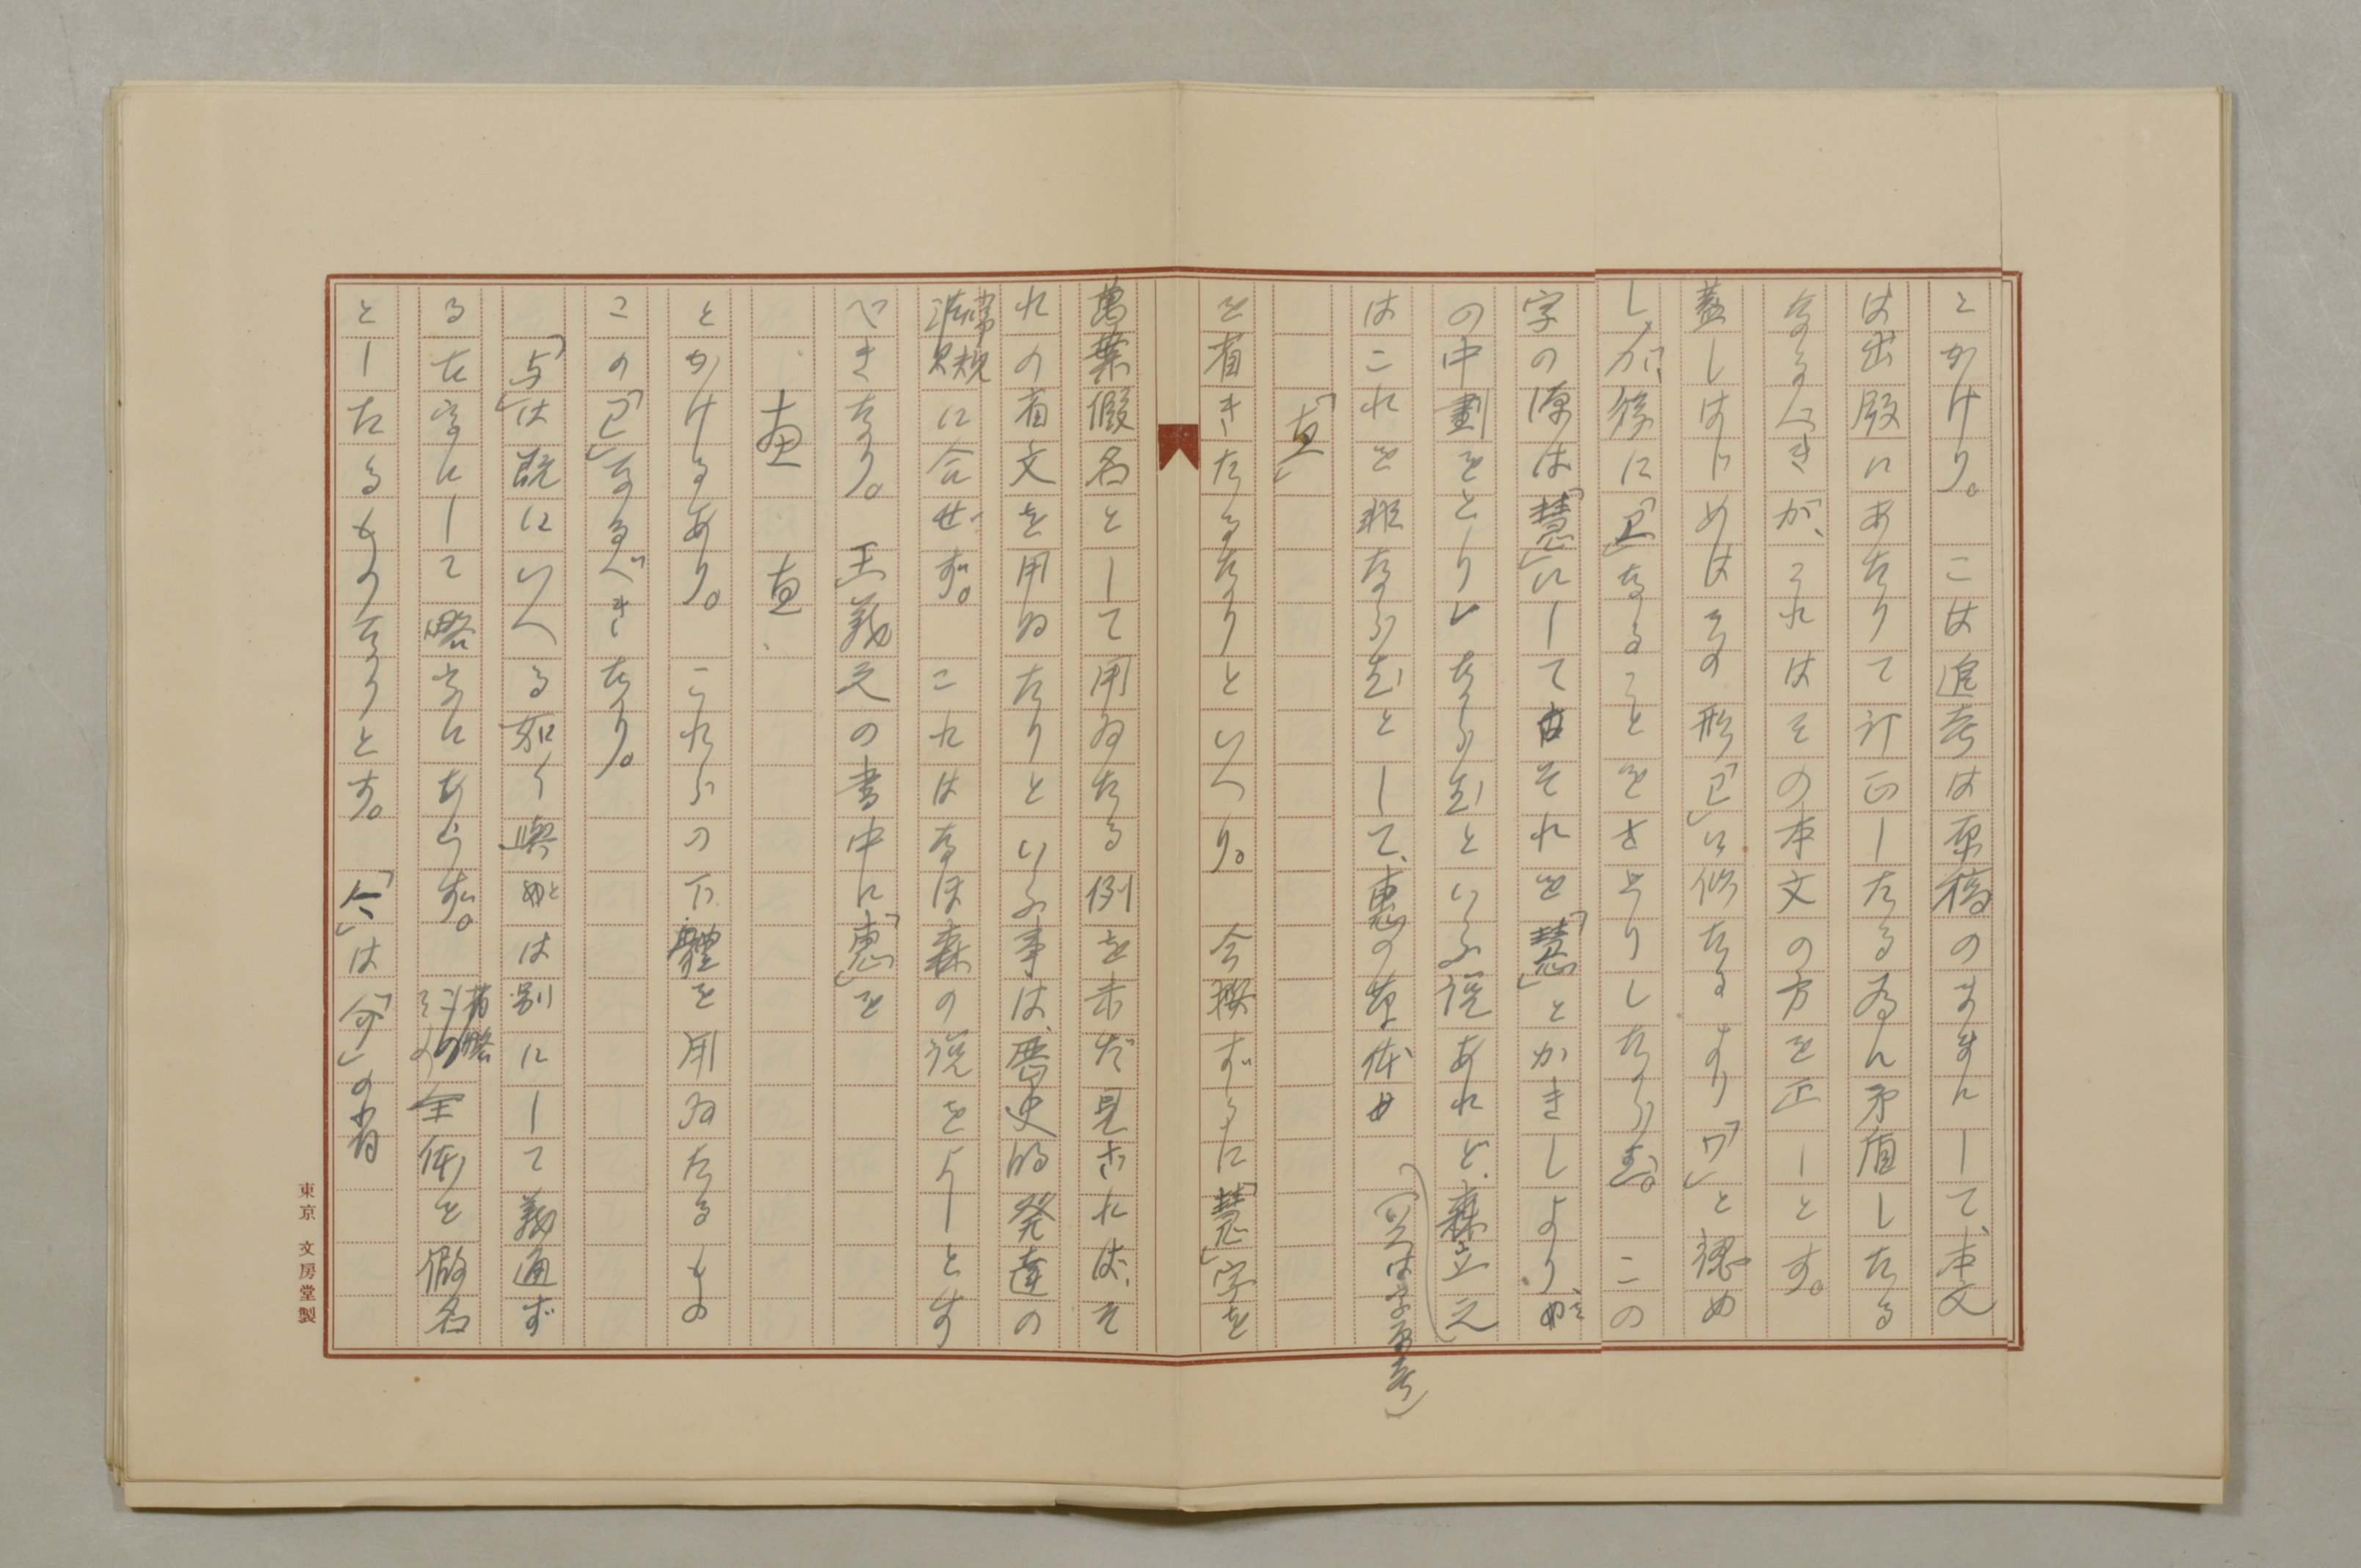 とかけり。こは追考は原稿のまゝにして、本文
は出版にあたりて訂正したる為に矛盾したる
なるべきが、これはその本文の方を正しとす。
蓋しはじめはその形「卫」に似たるより「ワ」と認め
しが、後に「卫」なることをさとりしならむ。この
字の源は「慧」にして それを「慧」とかきしより、そ
の中畫をとりしならむといふ説あれど、森立之
はこれを非ならむとして、恵の草体
(又は字原考)
「恵」
を省きたるなりといへり。今按ずるに「慧」字を
萬葉假名として用ゐたる例を未だ見ざれば、そ
れの省文を用ゐたりといふ事は、歴史的発達の
常規に合せず。これはなほ森の説をよしとす
べきなり。王羲之の書中に「恵」を
とかけるあり。これらの下體を用ゐたるもの
この「卫」なるべきなり。
「与」は既にいへる如く與とは別にして義通ず
る左字にして略字にあらず。省略 全体を假名
としたるものなりとす。「仒」は「尒」の省
東京 文房堂製